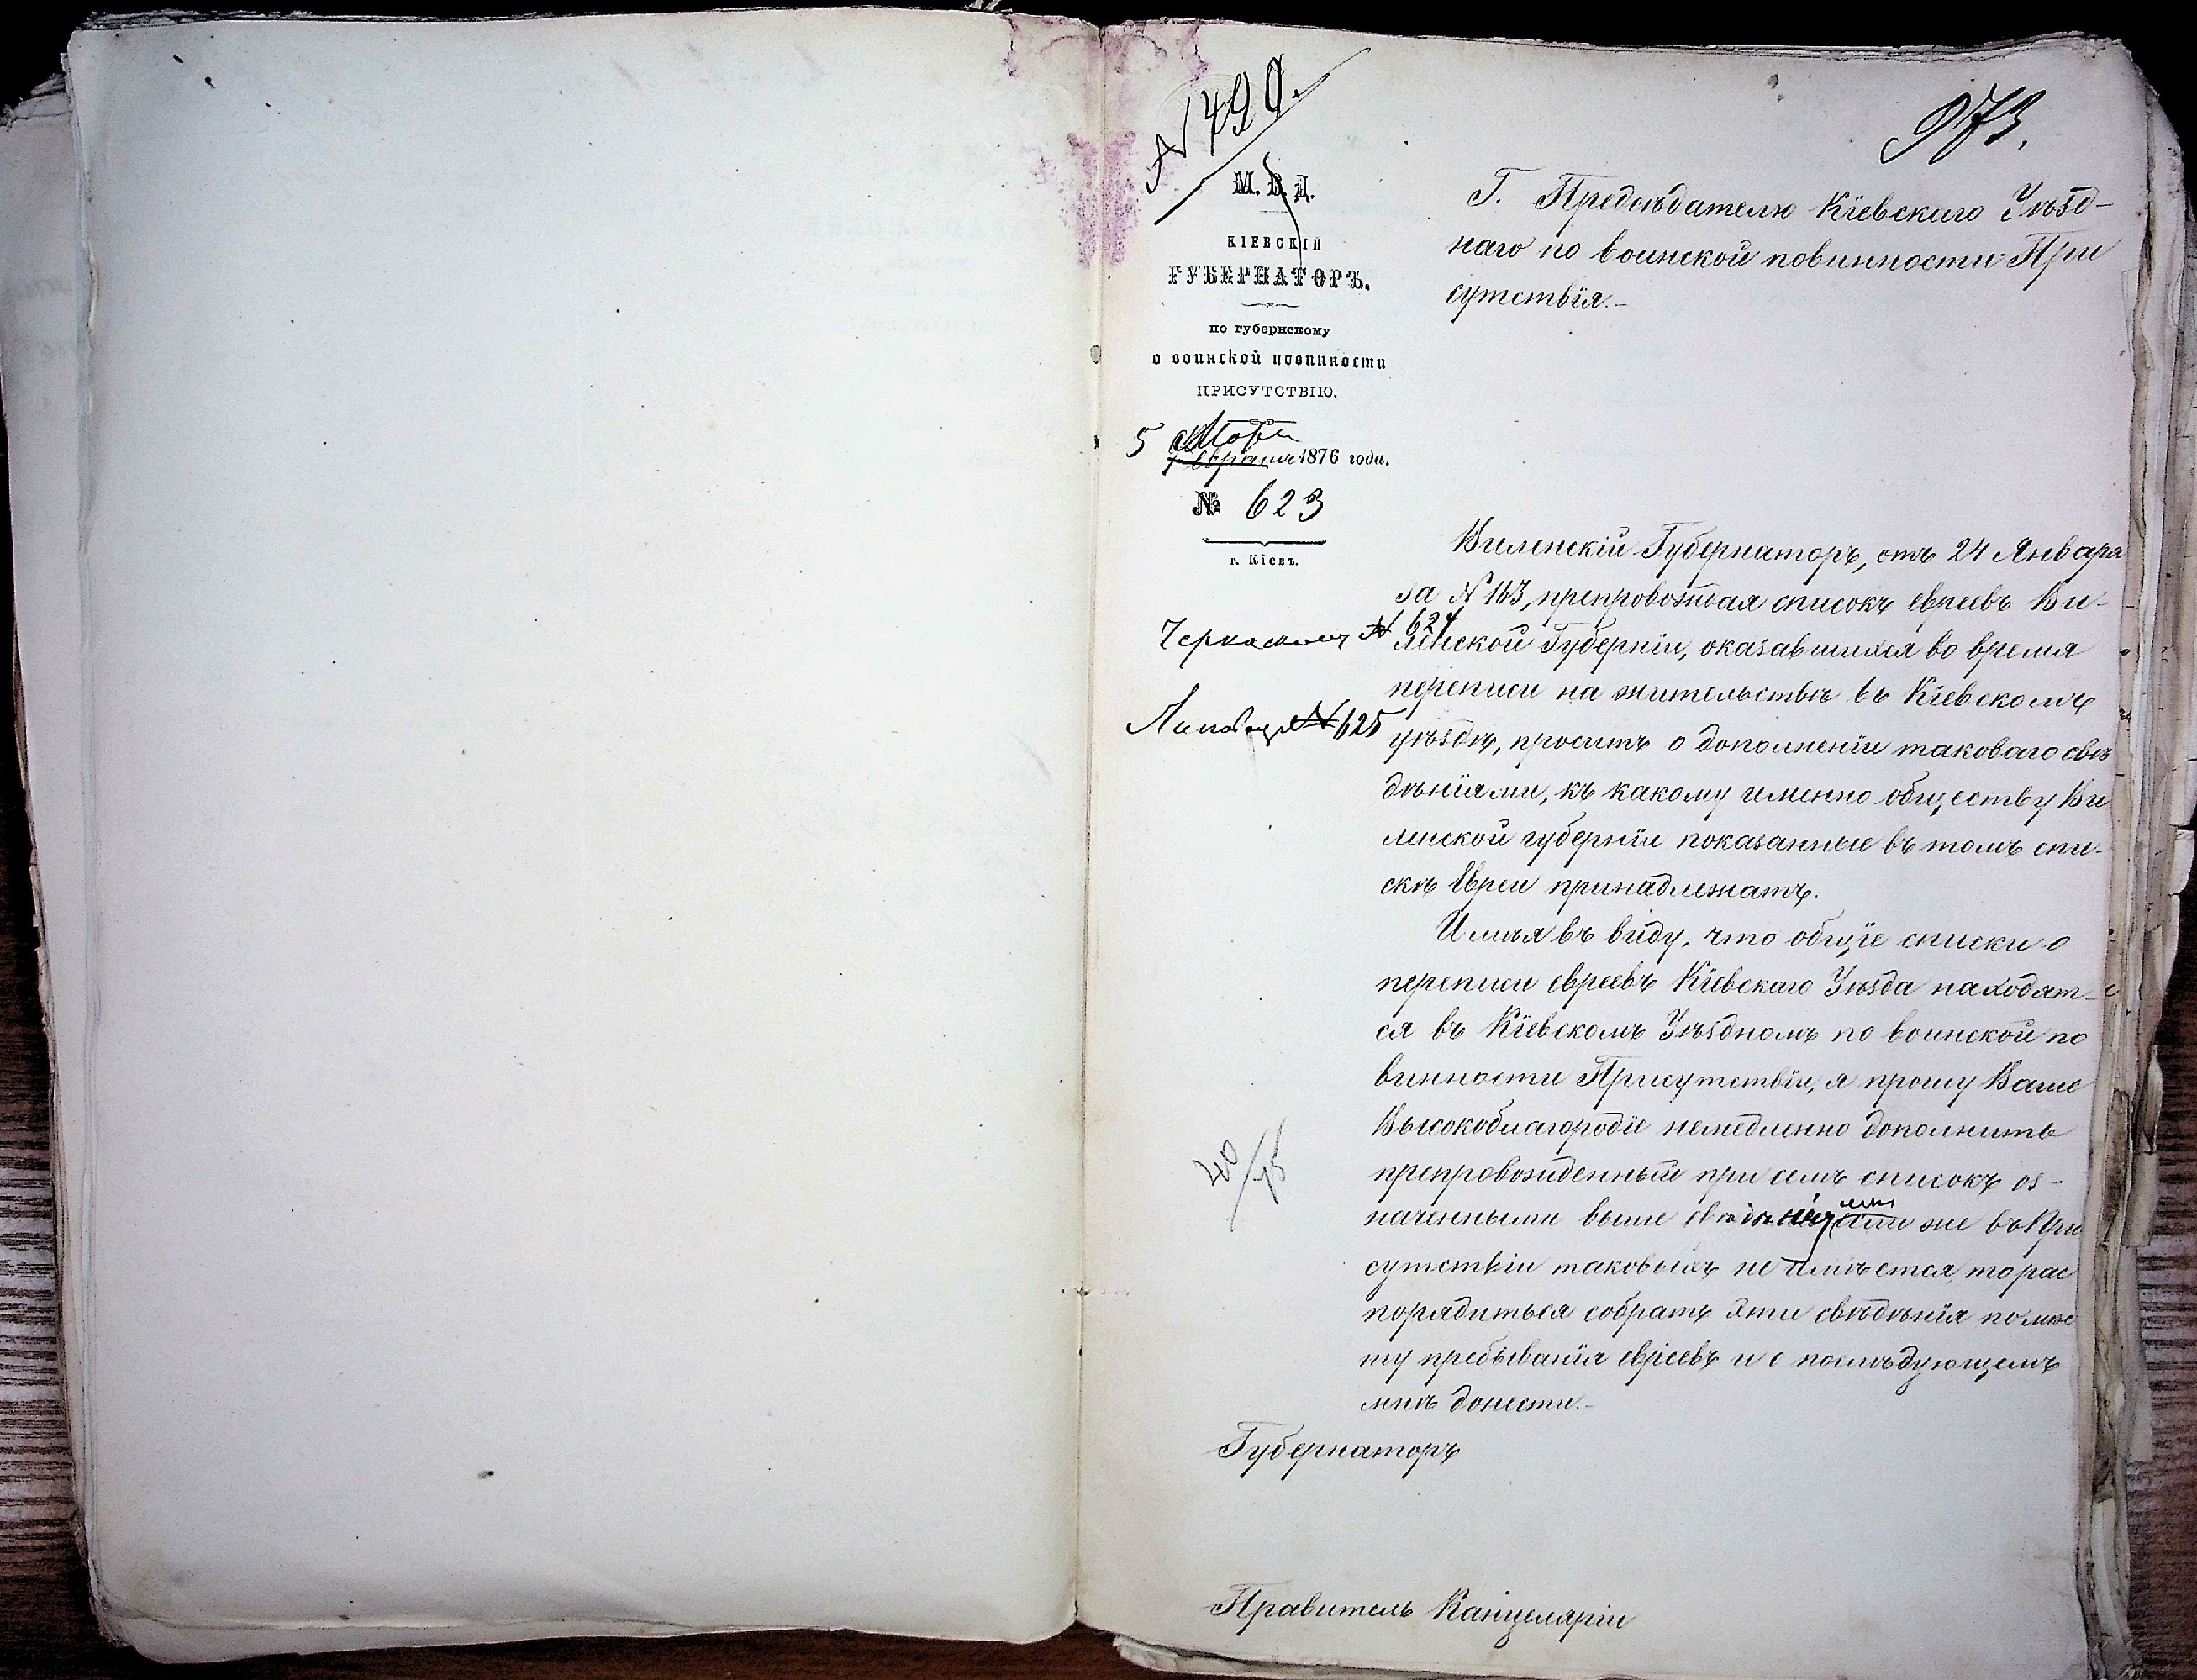 № 499.
М. В. Д.
КІЕВСКІЙ
ГУБЕРНАТОРЪ.
по губернскому
о воинской повинности
ПРИСУТСТВІЮ.
5 Марта
Февраля 1876 года.
№ 623
г. Кіевъ.
Черкаском № 624
Липовец № 625
40/75
973.
Г. Предсѣдателю Кіевскаго Уѣзд-
наго по воинской повинности При
сутствія.-
Виленскій Губернаторъ, отъ 24 Января
за № 163, препровождая списокъ евреевъ Ви-
ленской Губерніи, оказавшихся во время
переписи на жительствѣ въ Кіевскомъ
уѣздѣ, проситъ о дополненіи таковаго свѣ
дѣніями, къ какому именно обществу Ви
ленской губерніи показанные въ томъ спи-
скѣ Евреи принадлежатъ.
Имѣя въ виду, что общіе списки о
переписи евреевъ Кіевскаго Уѣзда находят-
ся въ Кіевскомъ Уѣздномъ по воинской по
винности Присутствіи, я прошу Ваше
Высокоблагородіе немедленно дополнить
препровожденный при семъ списокъ оз-
наченными выше свѣдѣніями, если же въ При
сутствіи таковыхъ не имѣется, то рас
порядиться собрать эти свѣдѣнія по мѣс
ту пребыванія евреевъ и о послѣдующемъ
мнѣ донести.-
Губернаторъ
Правитель Канцеляріи